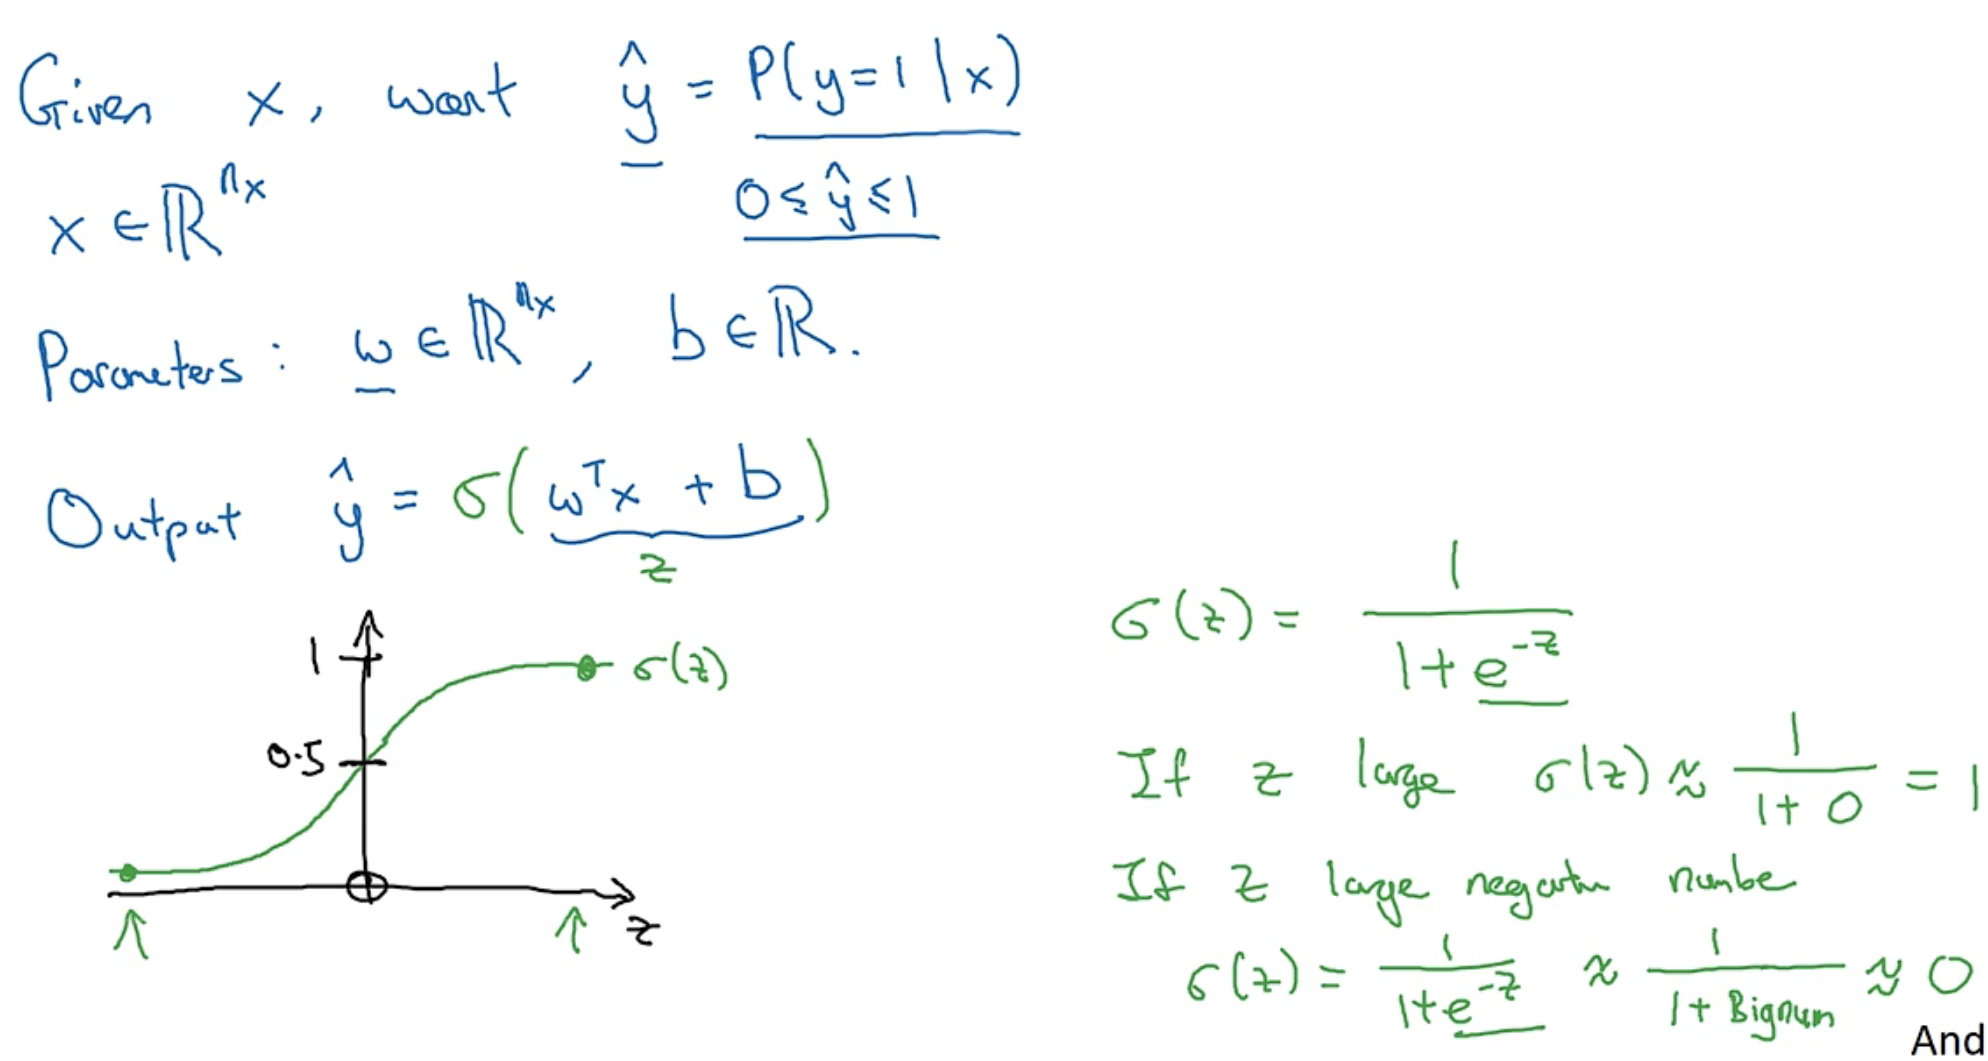 Given x, want ŷ = P(y=1|x)
x ∈ ℝⁿˣ 0 ≤ ŷ ≤ 1
Parameters: w ∈ ℝⁿˣ, b ∈ ℝ.
Output ŷ = σ(wᵀx + b)
z
1
σ(z)
0.5
z
σ(z) = 1 / (1 + e^-z)
If z large σ(z) ≈ 1 / (1 + 0) = 1
If z large negativ numbe
σ(z) = 1 / (1 + e^-z) ≈ 1 / (1 + Bignum) ≈ 0
And